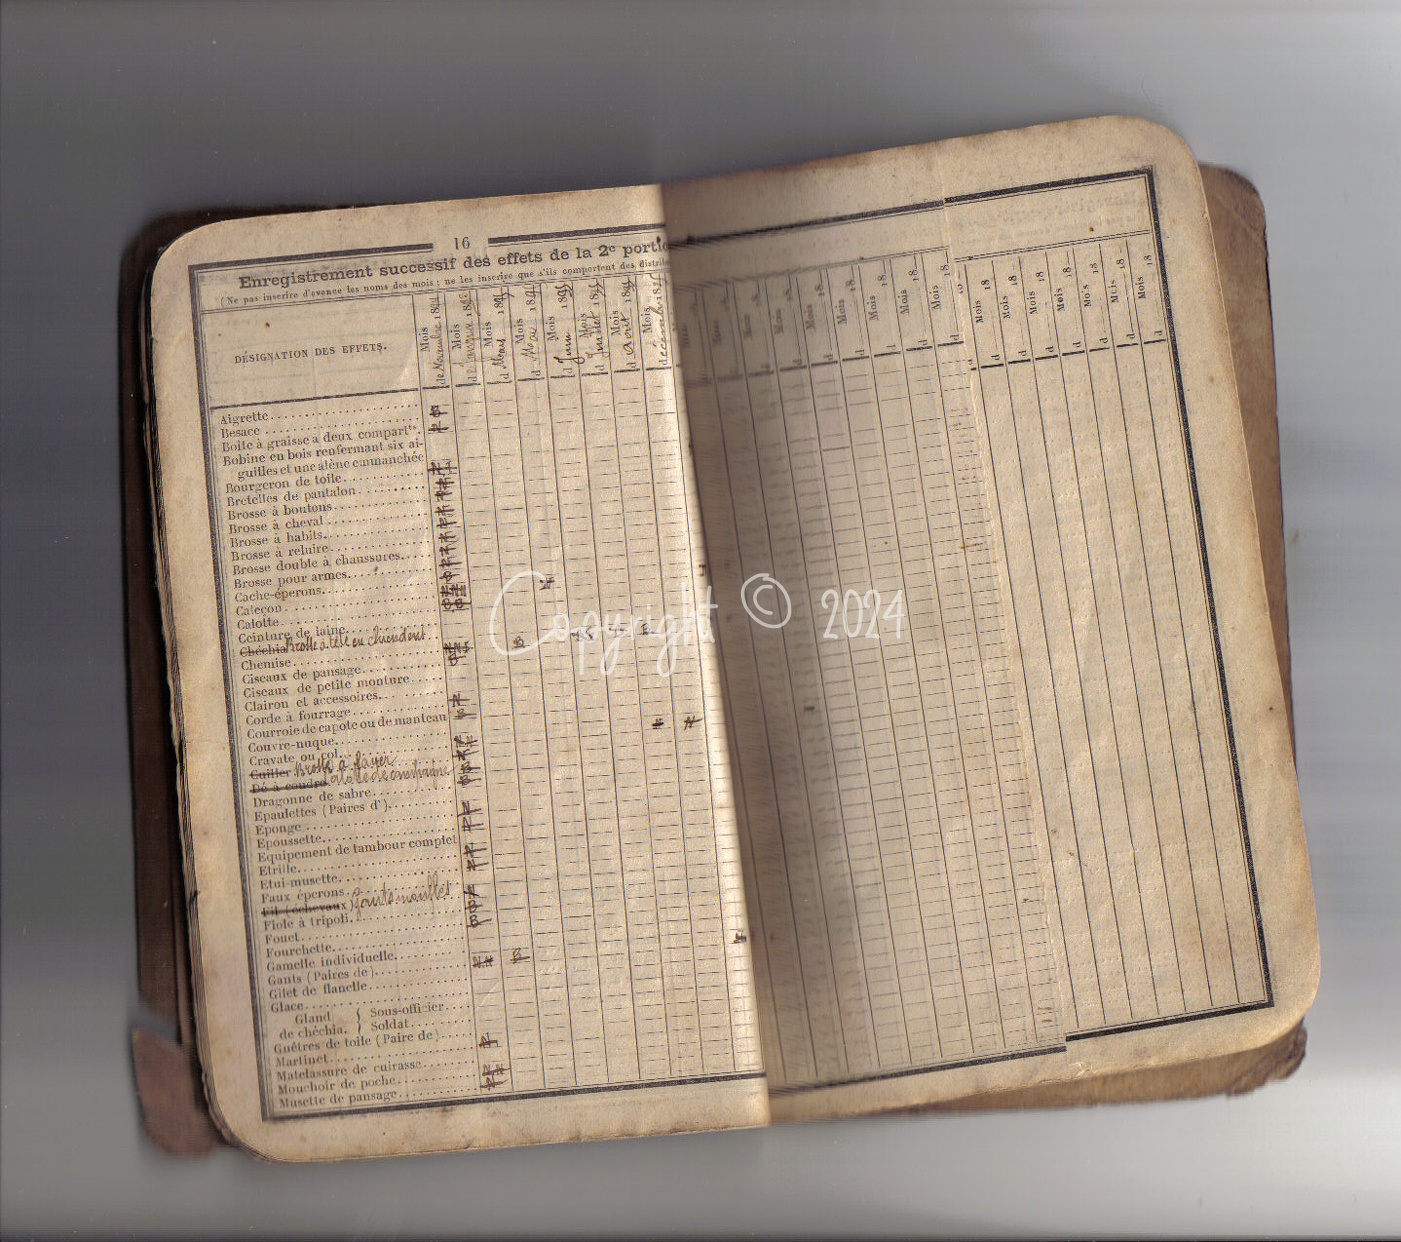 16
Enregistrement successif des effets de la 2e portio
(Ne pas inscrire d'avance les noms des mois ; ne les inscrire que s'ils comportent des distrib
DÉSIGNATION DES EFFETS.
Mois de Novembre 18
Mois d Janvier 18
Mois d Mars 18
Mois d Mai 18
Mois d Juin 18
Mois d Juillet 18
Mois d Août 18
Mois décembre 18
Mois 18 d
Mois 18 d
Mois 18 d
Mois 18 d
Mois 18 d
Mois 18 d
Mois 18 d
Mois 18 d
Mois 18 d
Mois 18 d
Mois 18 d
Aigrette
Besace
Boîte à graisse à deux compartts.
Bobine en bois renfermant six ai-
guilles et une alène emmanchée
Bourgeron de toile
Bretelles de pantalon
Brosse à boutons
Brosse à cheval
Brosse à habits
Brosse à reluire
Brosse double à chaussures
Brosse pour armes
Cache-éperons
Caleçon
Calotte
Ceinture de laine
Chéchia Brosse à tête en chiendent
Chemise
Ciseaux de pansage
Ciseaux de petite monture
Clairon et accessoires
Corde à fourrage
Courroie de capote ou de manteau
Couvre-nuque
Cravate ou col
Cuiller Brosse à laver
Dé à coudre
Dragonne de sabre
Epaulettes (Paires d')
Eponge
Epoussette
Equipement de tambour complet
Etrille
Etui-musette
Faux éperons
Fil (écheveaux)
Fiole à tripoli
Fouet
Fourchette
Gamelle individuelle
Gants (Paires de)
Gilet de flanelle
Glace
Gland de chéchia. { Sous-officier
Soldat
Guêtres de toile (Paire de)
Martinet
Matelassure de cuirasse
Mouchoir de poche
Musette de pansage
Copyright © 2024